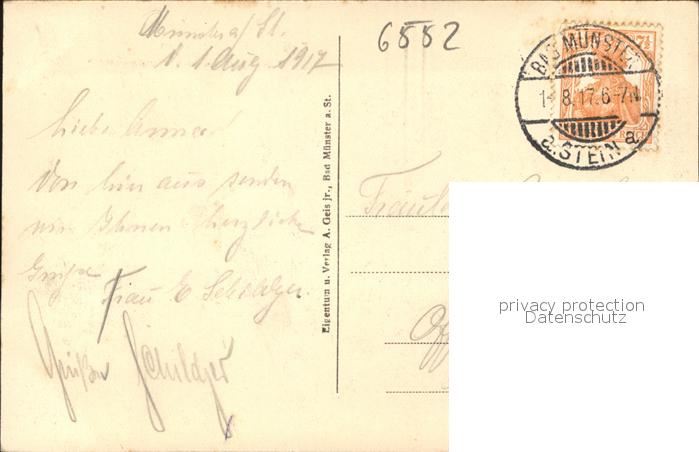 Münster a/ St.
d. 1. Aug 1917
Liebe Anna!
Von hier aus senden
wir Ihnen herzliche
Grüße
Frau E Schildger
Grüßen Schildger
Eigentum u. Verlag A. Geis jr., Bad Münster a. St.
6552
BAD MÜNSTER
1.8.17.6-7N
a. STEIN a
7½
Fräulein
Off
privacy protection
Datenschutz